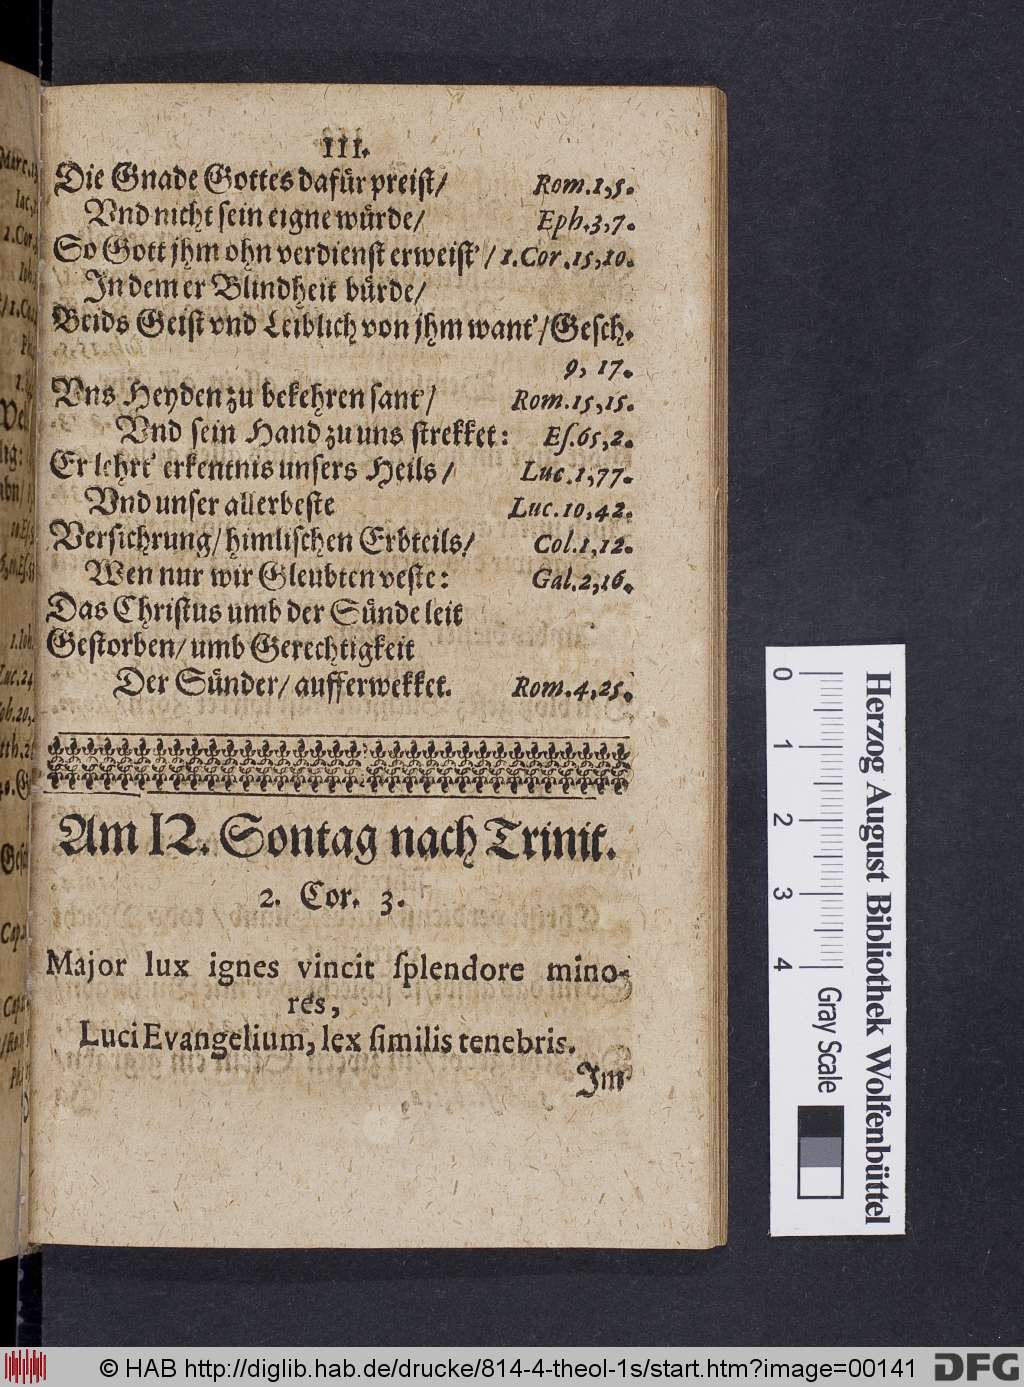 III.
Die Gnade Gottes dafür preist/ Rom.1,5.
Vnd nicht sein eigne würde/ Eph.3,7.
So Gott jhm ohn verdienst erweist'/ 1.Cor.15,10.
In dem er Blindheit bürde/
Beids Geist vnd Leiblich von jhm want'/Gesch.
9, 17.
Vns Heyden zu bekehren sant'/ Rom.15,15.
Vnd sein Hand zu uns strekket: Eſ.65,2.
Er lehrt' erkentnis unsers Heils/ Luc.1,77.
Vnd unser allerbeste Luc.10,42.
Versichrung/ himlischen Erbteils/ Col.1,12.
Wen nur wir Gleubten veste: Gal.2,16.
Das Christus umb der Sünde leit
Gestorben/ umb Gerechtigkeit
Der Sünder/ aufferwekket. Rom.4,25.
Am 12. Sontag nach Trinit.
2. Cor. 3.
Major lux ignes vincit ſplendore mino-
res,
Luci Evangelium, lex ſimilis tenebris.
Im
0 1 2 3 4
Gray Scale
Herzog August Bibliothek Wolfenbüttel
© HAB http://diglib.hab.de/drucke/814-4-theol-1s/start.htm?image=00141
DFG